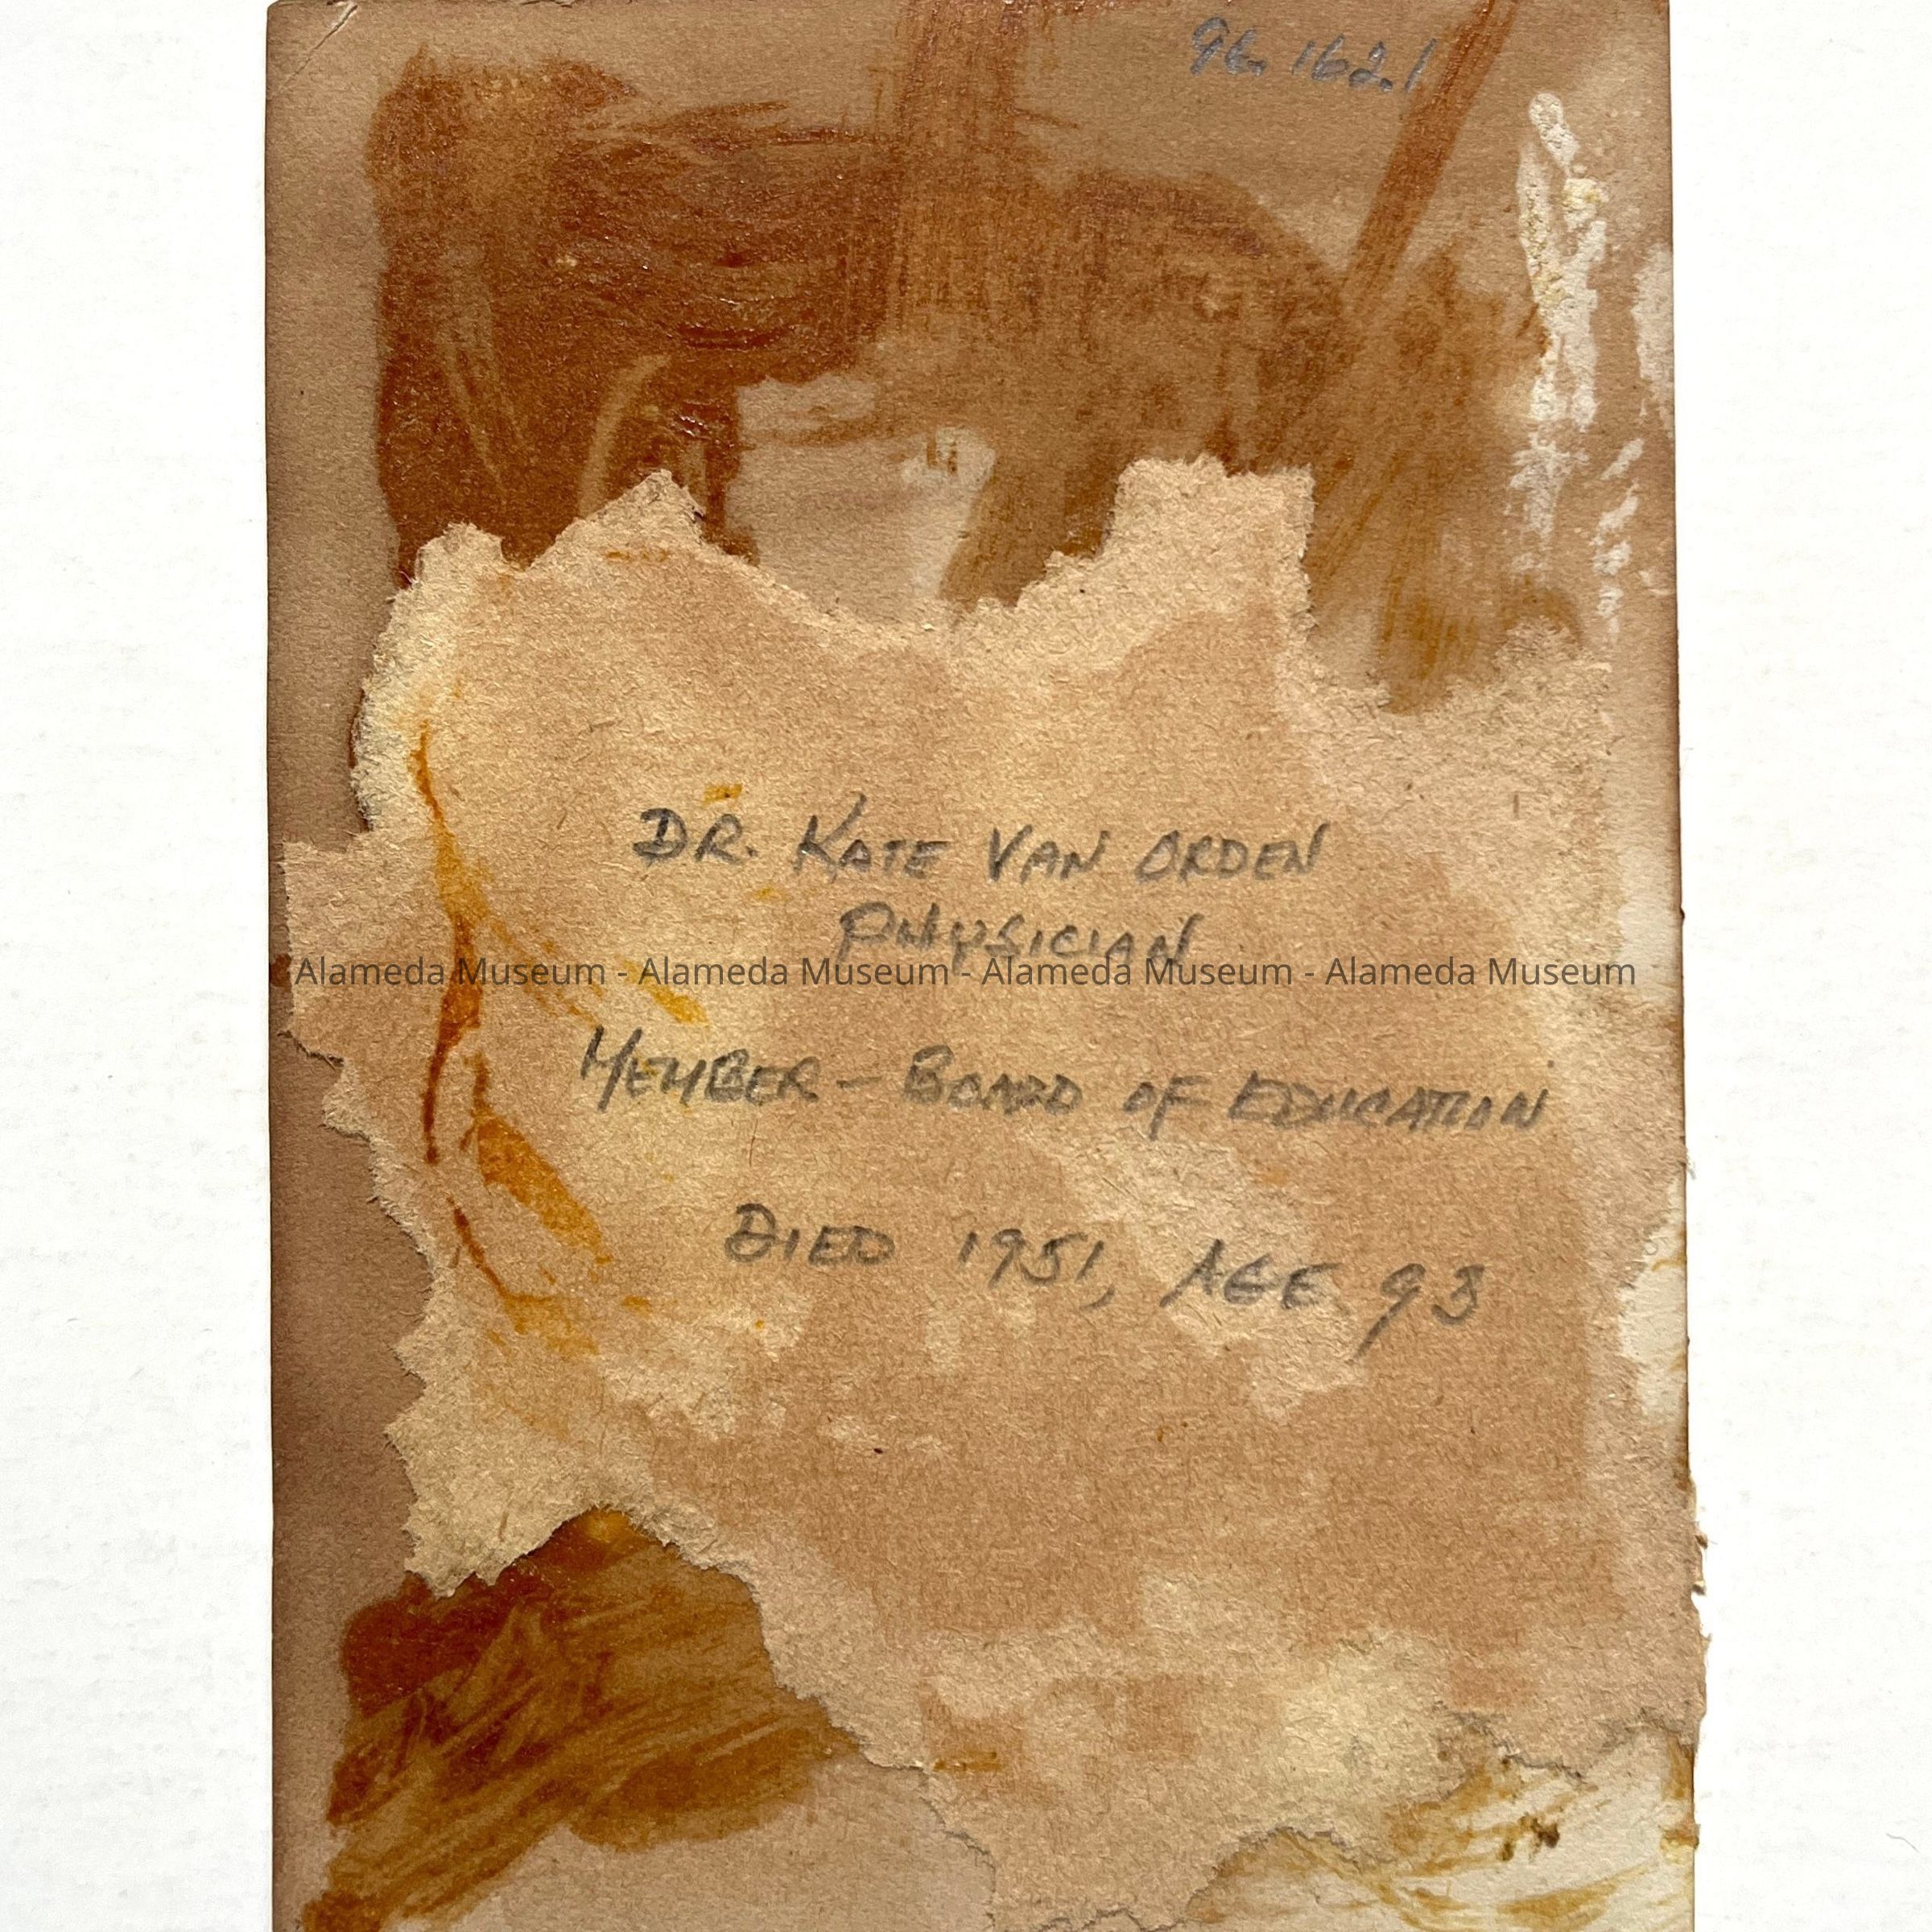 96.162.1
DR. KATE VAN ORDEN
PHYSICIAN
Alameda Museum - Alameda Museum - Alameda Museum - Alameda Museum
MEMBER - BOARD OF EDUCATION
DIED 1951, AGE 93